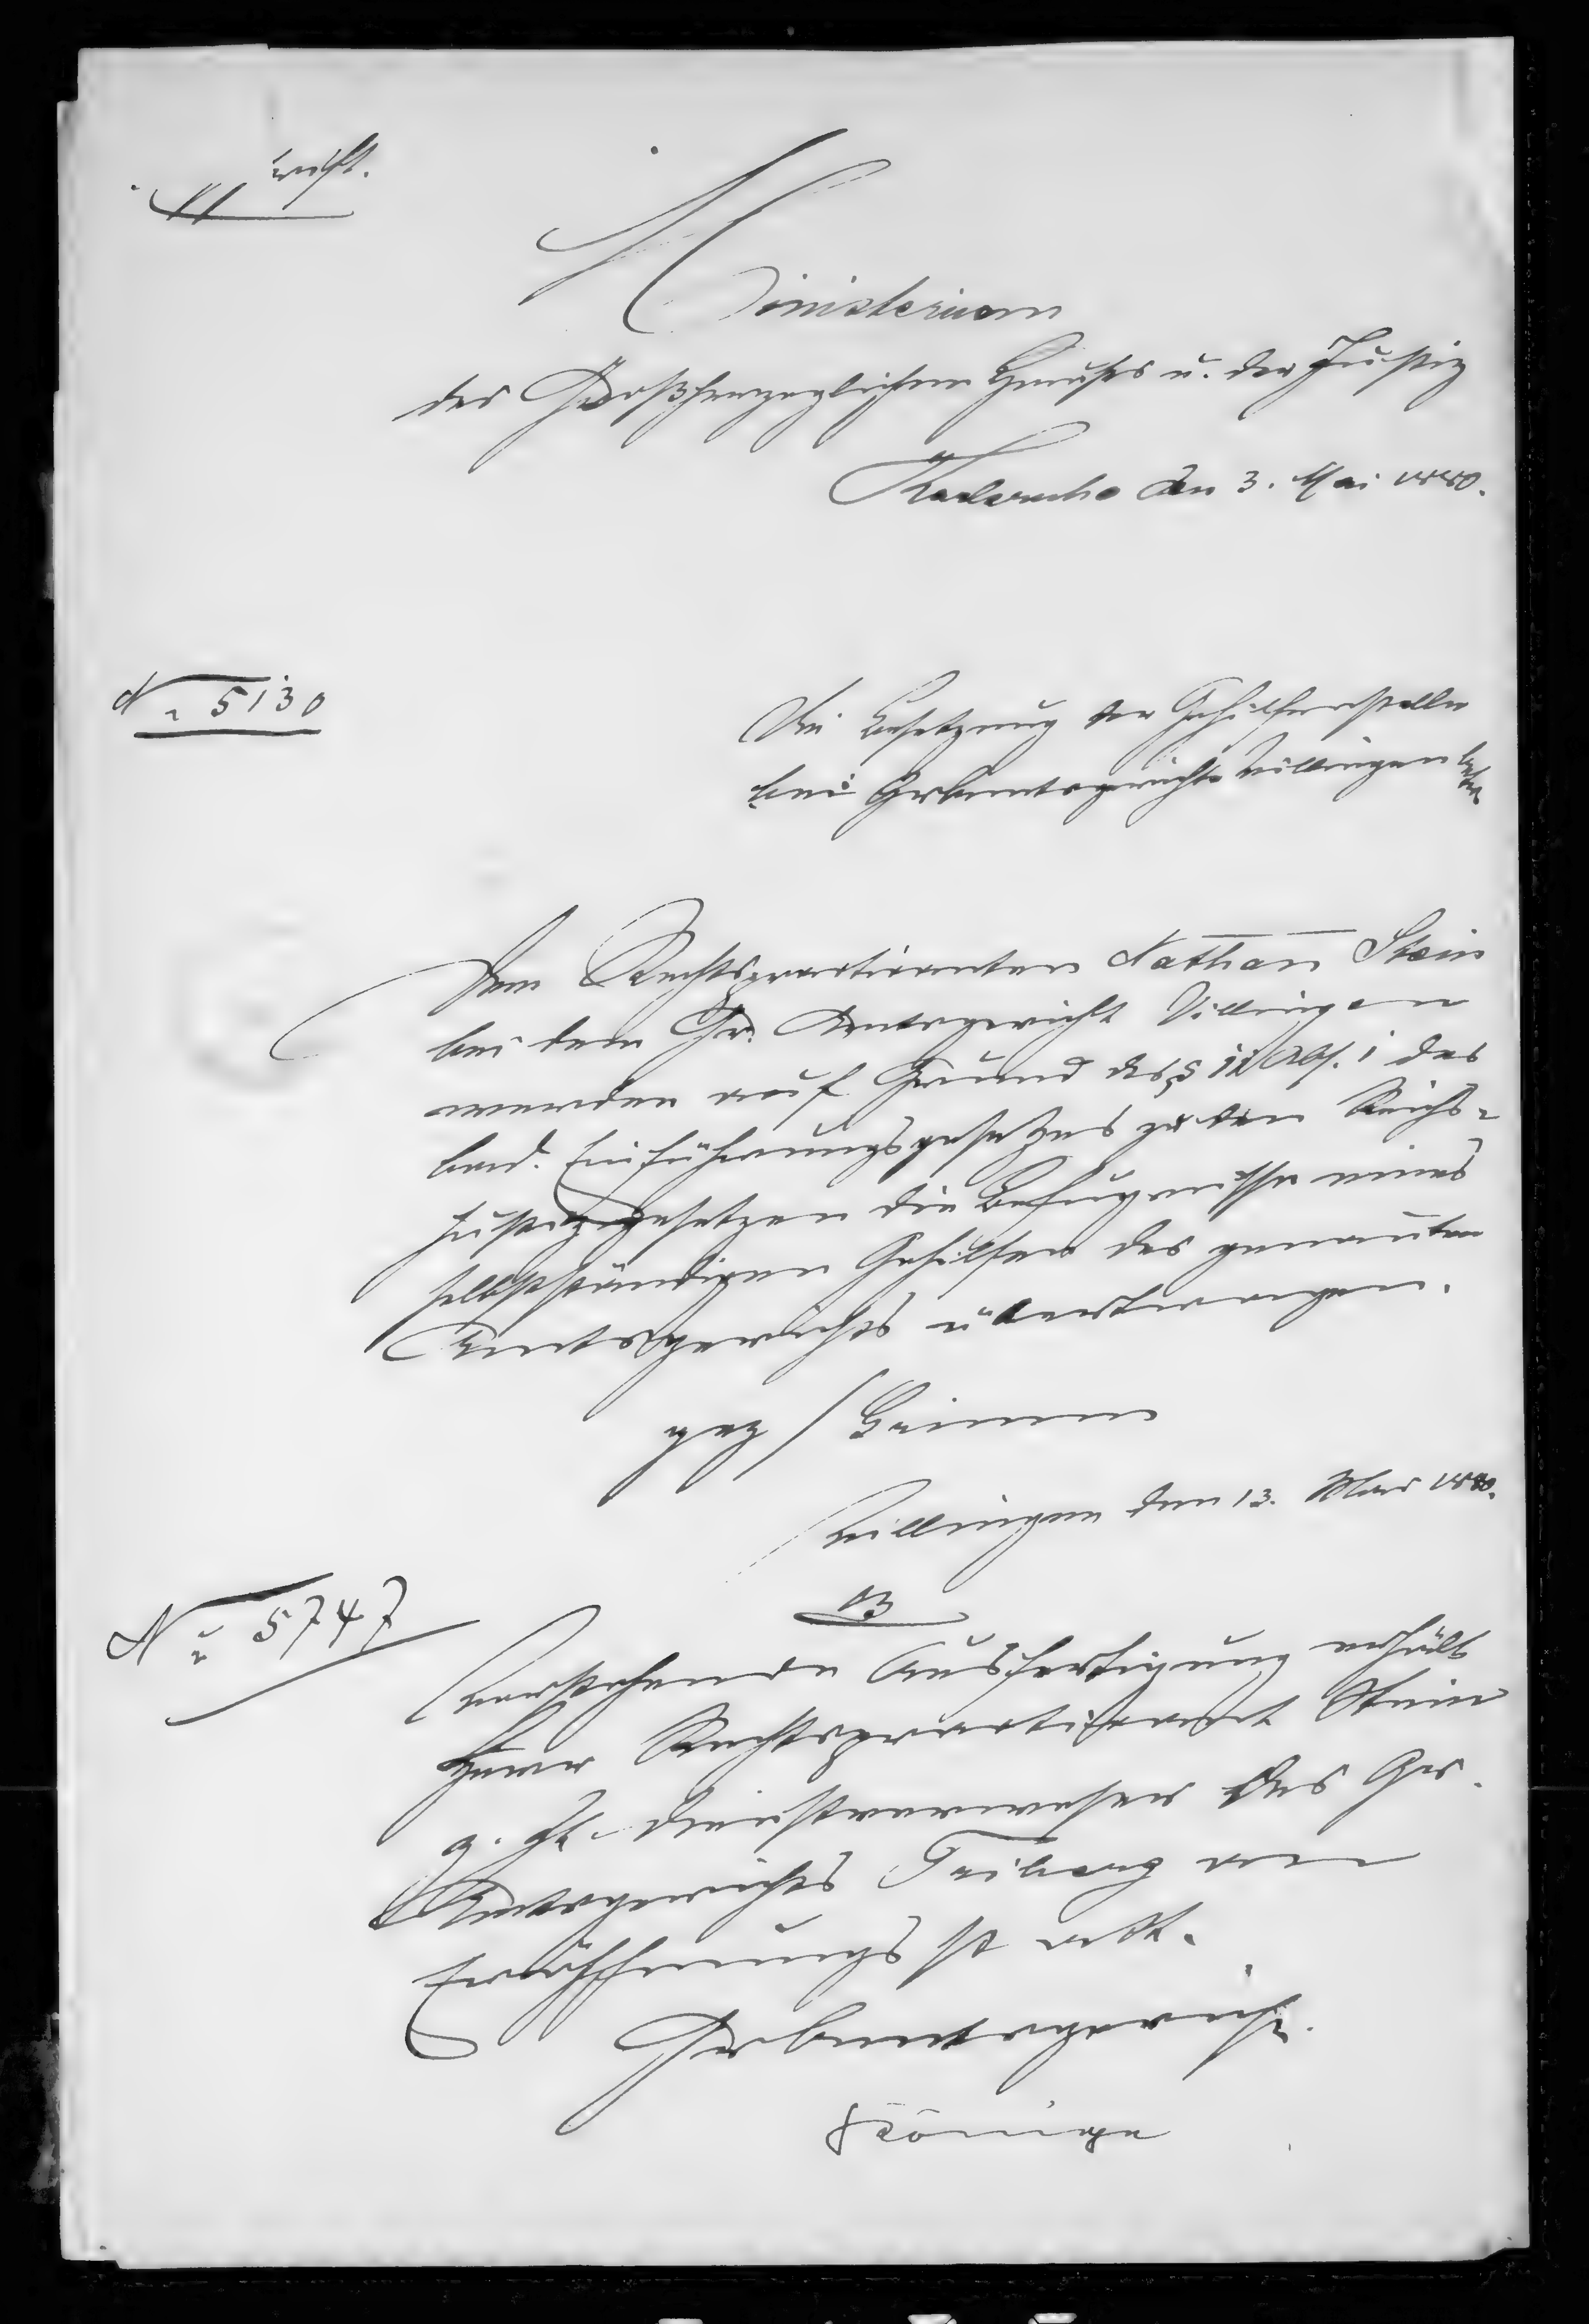 Ministerium
des Großherzoglichen Hauses u. der Justiz
Karlsruhe den 3. Mai 1880.
No 5130
Die Besetzung der Gehilfenstelle
bei Gr. Amtsgericht Villingen betr.
Dem Rechtspractikanten Nathan Stein
bei dem Gr. Amtsgericht Villingen
werden auf Grund des § 12 Abs. 1 des
bad. Einführungsgesetzes zu den Reichs-
justizgesetzen die Befugnisse eines
selbstständigen Gehilfen des genannten
Amtsgerichts übertragen.
gez / Grimm
Villingen den 13. Mai 1880.
No 5747
B
Vorstehende Ausfertigung erhält
Herr Rechtspractikant Stein
z. Zt. Dienstverweser des Gr.
Amtsgerichts Triberg an
Eröffnungs statt.
Gr. Amtsgericht.